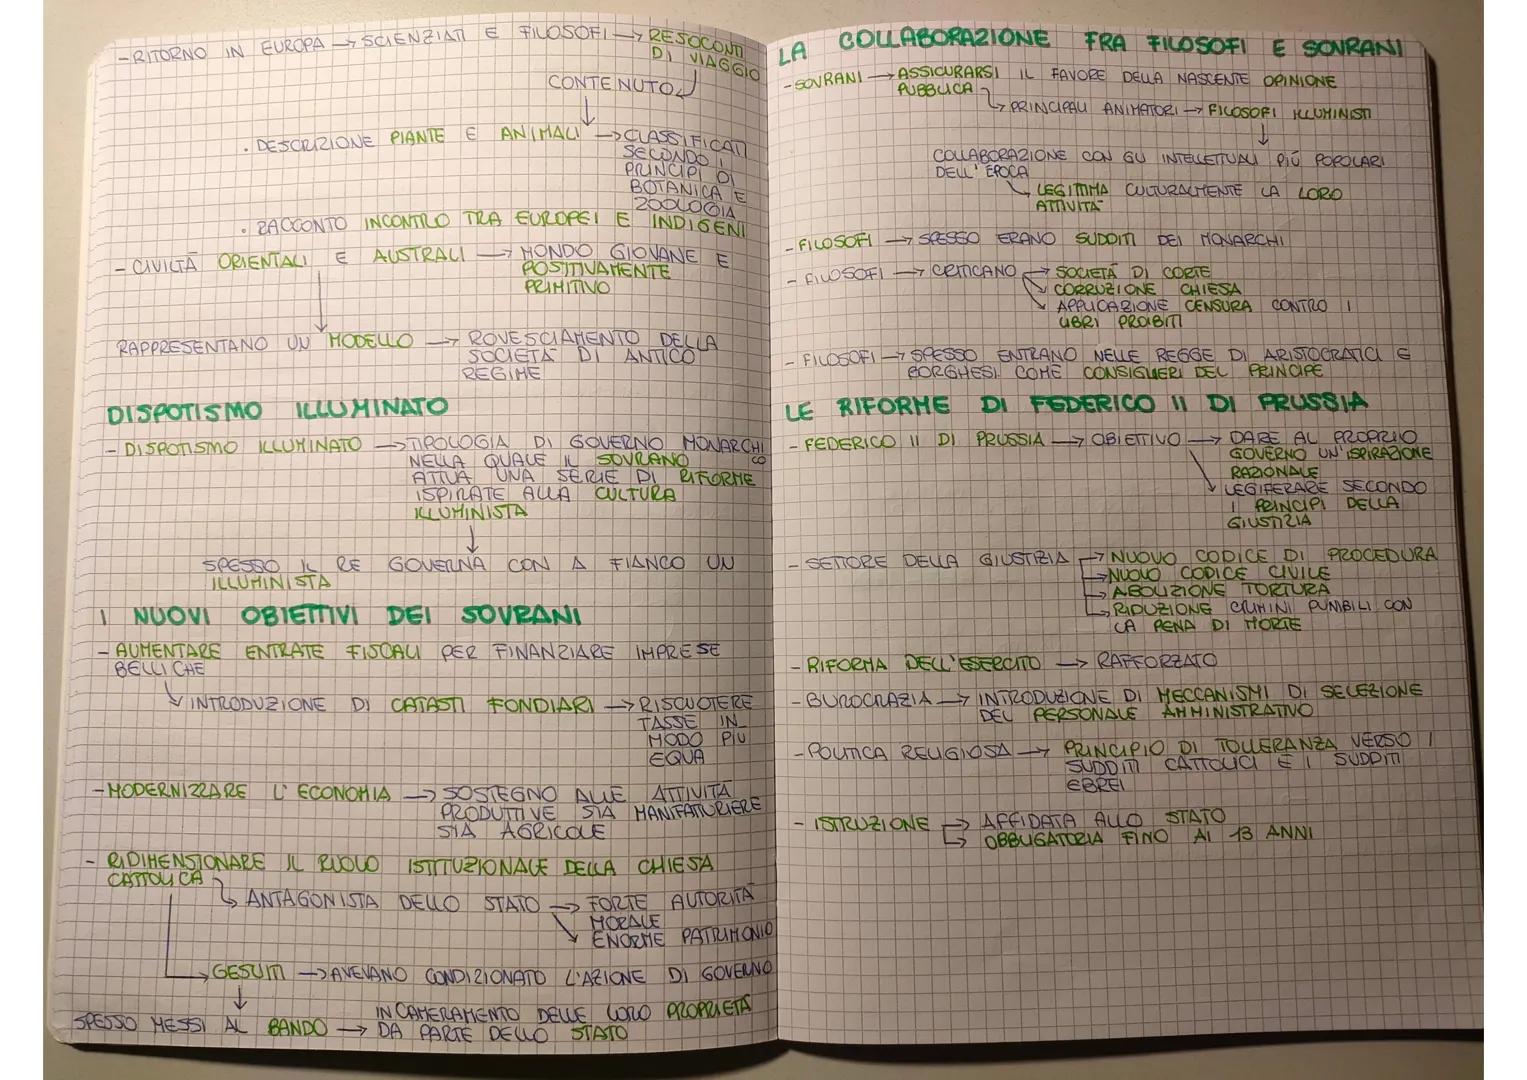 - RITORNO IN EUROPA → SCIENZIATI E FILOSOFI → RESOCONTI
DI VIAGGIO
CONTENUTO
. DESCRIZIONE PIANTE E ANIMALI → CLASSIFICATI
SECONDO I
PRINCIPI DI
BOTANICA E
ZOOLOGIA
. RACCONTO INCONTRO TRA EUROPEI E INDIGENI
- CIVILTÀ ORIENTALI E AUSTRALI → MONDO GIOVANE E
POSITIVAMENTE
PRIMITIVO
RAPPRESENTANO UN MODELLO → ROVESCIAMENTO DELLA
SOCIETÀ DI ANTICO
REGIME
DISPOTISMO ILLUMINATO
- DISPOTISMO ILLUMINATO → TIPOLOGIA DI GOVERNO MONARCHI
CO
NELLA QUALE IL SOVRANO
ATTUA UNA SERIE DI RIFORME
ISPIRATE ALLA CULTURA
ILLUMINISTA
SPESSO IL RE GOVERNA CON A FIANCO UN
ILLUMINISTA
I NUOVI OBIETTIVI DEI SOVRANI
- AUMENTARE ENTRATE FISCALI PER FINANZIARE IMPRESE
BELLICHE
INTRODUZIONE DI CATASTI FONDIARI → RISCUOTERE
TASSE IN
MODO PIÙ
EQUA
- MODERNIZZARE L'ECONOMIA → SOSTEGNO ALLE ATTIVITÀ
PRODUTTIVE SIA MANIFATTURIERE
SIA AGRICOLE
- RIDIMENSIONARE IL RUOLO ISTITUZIONALE DELLA CHIESA
CATTOLICA
ANTAGONISTA DELLO STATO → FORTE AUTORITÀ
MORALE
ENORME PATRIMONIO
GESUITI → AVEVANO CONDIZIONATO L'AZIONE DI GOVERNO
SPESSO MESSI AL BANDO → INCAMERAMENTO DELLE LORO PROPRIETÀ
DA PARTE DELLO STATO
LA COLLABORAZIONE FRA FILOSOFI E SOVRANI
- SOVRANI → ASSICURARSI IL FAVORE DELLA NASCENTE OPINIONE
PUBBLICA
PRINCIPALI ANIMATORI → FILOSOFI ILLUMINISTI
COLLABORAZIONE CON GLI INTELLETTUALI PIÙ POPOLARI
DELL'EPOCA
LEGITTIMA CULTURALMENTE LA LORO
ATTIVITÀ
- FILOSOFI → SPESSO ERANO SUDDITI DEI MONARCHI
- FILOSOFI → CRITICANO → SOCIETÀ DI CORTE
CORRUZIONE CHIESA
APPLICAZIONE CENSURA CONTRO I
LIBRI PROIBITI
- FILOSOFI → SPESSO ENTRANO NELLE REGGE DI ARISTOCRATICI E
BORGHESI COME CONSIGLIERI DEL PRINCIPE
LE RIFORME DI FEDERICO II DI PRUSSIA
- FEDERICO II DI PRUSSIA → OBIETTIVO → DARE AL PROPRIO
GOVERNO UN'ISPIRAZIONE
RAZIONALE
LEGIFERARE SECONDO
I PRINCIPI DELLA
GIUSTIZIA
- SETTORE DELLA GIUSTIZIA → NUOVO CODICE DI PROCEDURA
→ NUOVO CODICE CIVILE
→ ABOLIZIONE TORTURA
→ RIDUZIONE CRIMINI PUNIBILI CON
LA PENA DI MORTE
- RIFORMA DELL'ESERCITO → RAFFORZATO
- BUROCRAZIA → INTRODUZIONE DI MECCANISMI DI SELEZIONE
DEL PERSONALE AMMINISTRATIVO
- POLITICA RELIGIOSA → PRINCIPIO DI TOLLERANZA VERSO I
SUDDITI CATTOLICI E I SUDDITI
EBREI
- ISTRUZIONE → AFFIDATA ALLO STATO
→ OBBLIGATORIA FINO AI 13 ANNI